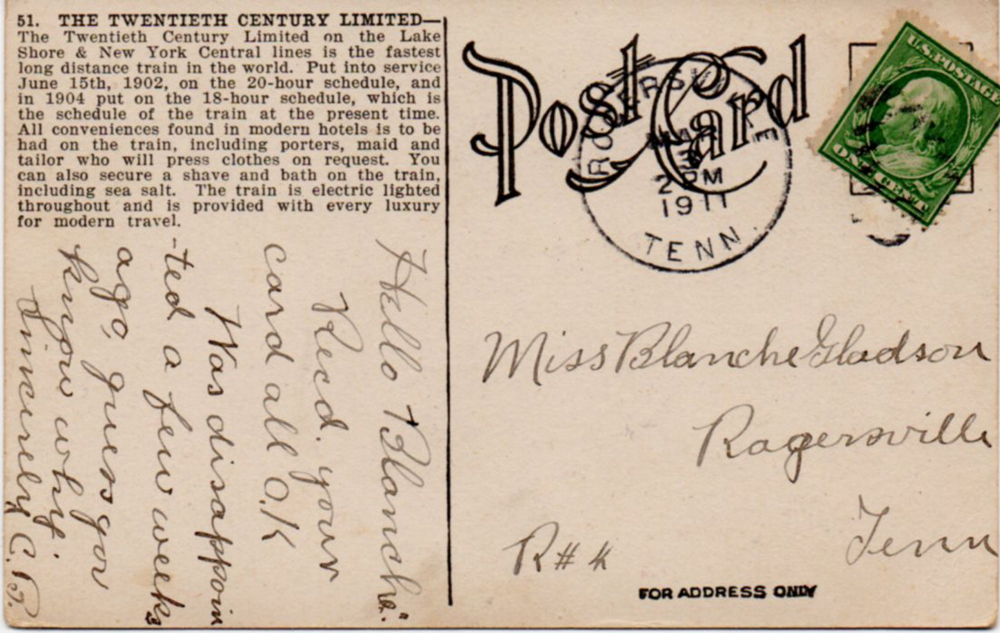 51. THE TWENTIETH CENTURY LIMITED—
The Twentieth Century Limited on the Lake
Shore & New York Central lines is the fastest
long distance train in the world. Put into service
June 15th, 1902, on the 20-hour schedule, and
in 1904 put on the 18-hour schedule, which is
the schedule of the train at the present time.
All conveniences found in modern hotels is to be
had on the train, including porters, maid and
tailor who will press clothes on request. You
can also secure a shave and bath on the train,
including sea salt. The train is electric lighted
throughout and is provided with every luxury
for modern travel.
Hello Blanche".
Recd. your
card all O.K
Was disappoin
-ted a few weeks
ago, guess you
know why.
Sincerely C.B.
Post Card
ROGERSVILLE
MAR
2 PM
1911
TENN.
U.S. POSTAGE
ONE CENT
Miss Blanche Gladson
Rogersville
Tenn
R# 4
FOR ADDRESS ONLY